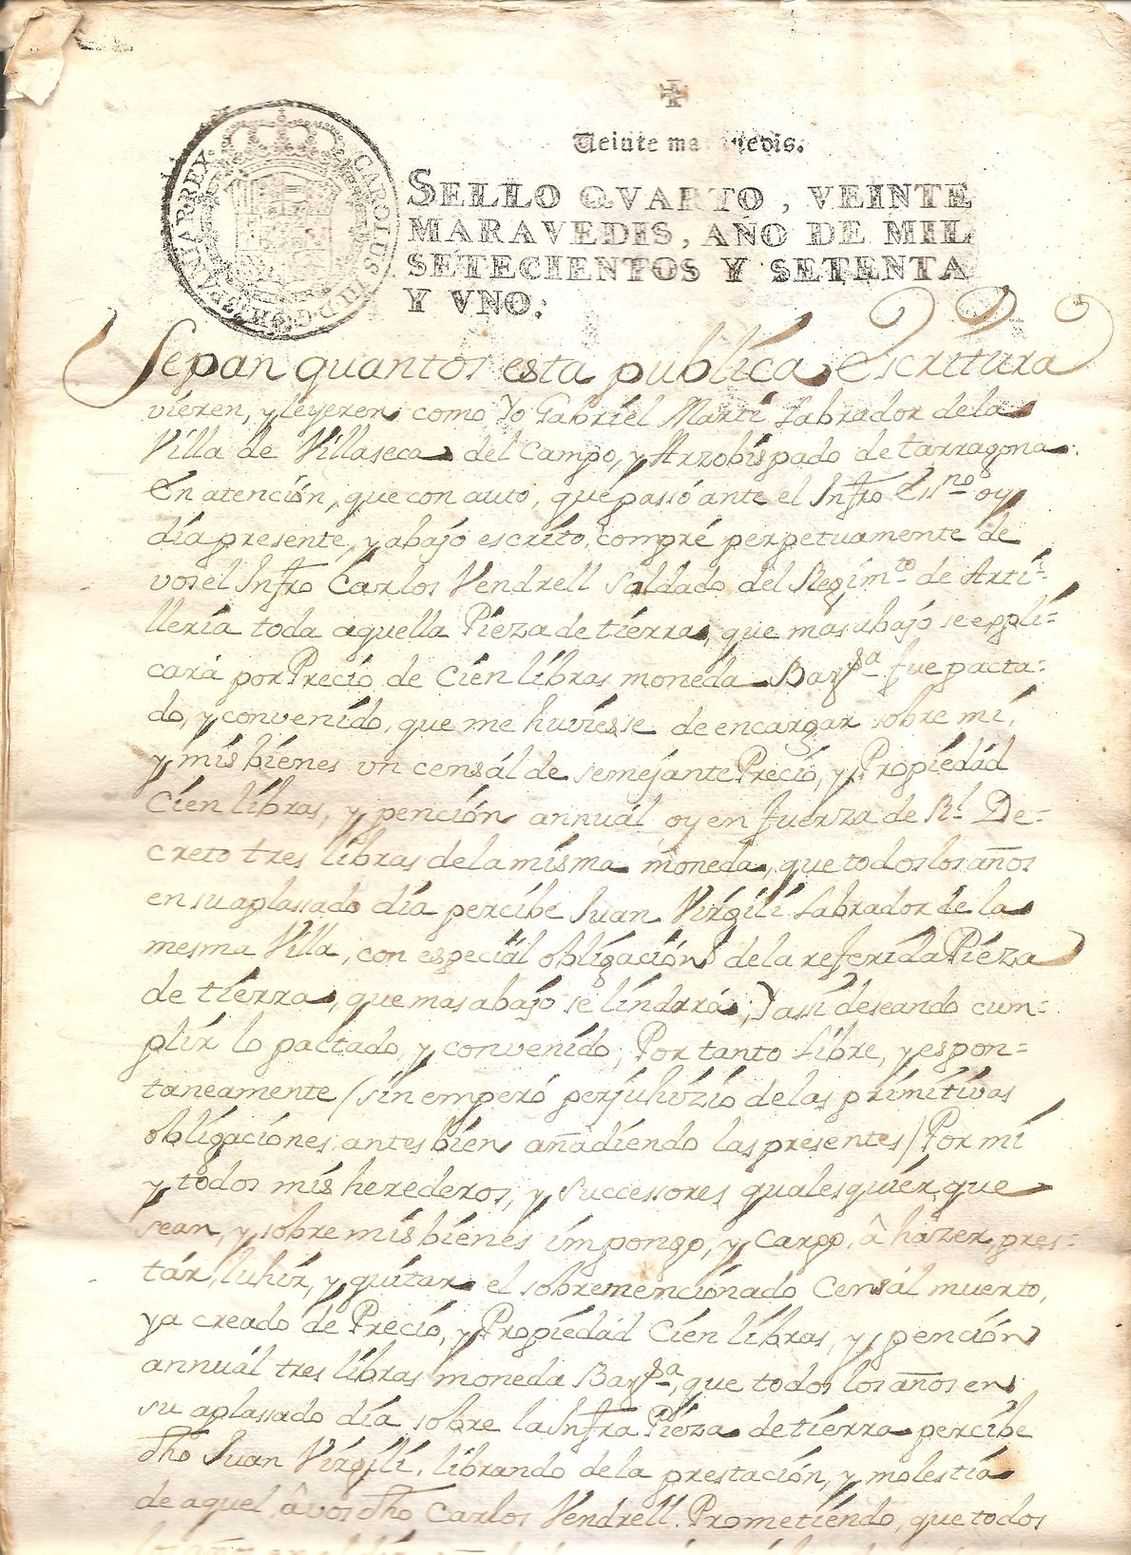 ✠
Veinte maravedis.
CAROLUS III D G HISPANIAR REX
SELLO QVARTO, VEINTE
MARAVEDIS, AÑO DE MIL
SETECIENTOS Y SETENTA
Y VNO.
Sepan quantos esta publica Escritura
vieren, y leyeren como Yo Gabriel Martí Labrador de la
Villa de Villaseca del Campo, y Arzobispado de tarragona
En atención, que con auto, que passó ante el Infro Essno oy
día presente, y abajo escrito, compré perpetuamente de
vos el Infro Carlos Vendrell Soldado del Regimto de Arti-
lleria toda aquella Pieza de tierra, que mas abajo se expli-
cará por Precio de Cien libras moneda Barssa fue pacta-
do, y convenido, que me huviesse de encargar sobre mi,
y mis bienes un censál de semejante Precio, y Propiedád
Cien libras, y pención annuál oy en fuerza de Rl. De-
creto tres libras de la misma moneda, que todos los años
en su aplassado día percibe Juan Virgili Labrador de la
mesma Villa, con especiál obligación de la referida Pieza
de tierra, que mas abajo se lindará; Y assi deseando cum-
plir lo pactado, y convenido; Por tanto libre, y espon-
taneamente (sin emperó perjuhizio de las primitivas
obligaciones, antes bien añadiendo las presentes) Por mi
y todos mis herederos, y successores qualesquiér que
sean, y sobre mis bienes impongo, y cargo, â hazer, pres-
tár, luhir, y quitar el sobremencionado Censál muerto,
ya creado de Precio, y Propiedád Cien libras, y pención
annuál tres libras moneda Barssa, que todos los años en
su aplassado día sobre la Infra Pieza de tierra percibe
dho Juan Virgili, librando de la prestación, y molestia
de aquel, â vos dho Carlos Vendrell. Prometiendo, que todos